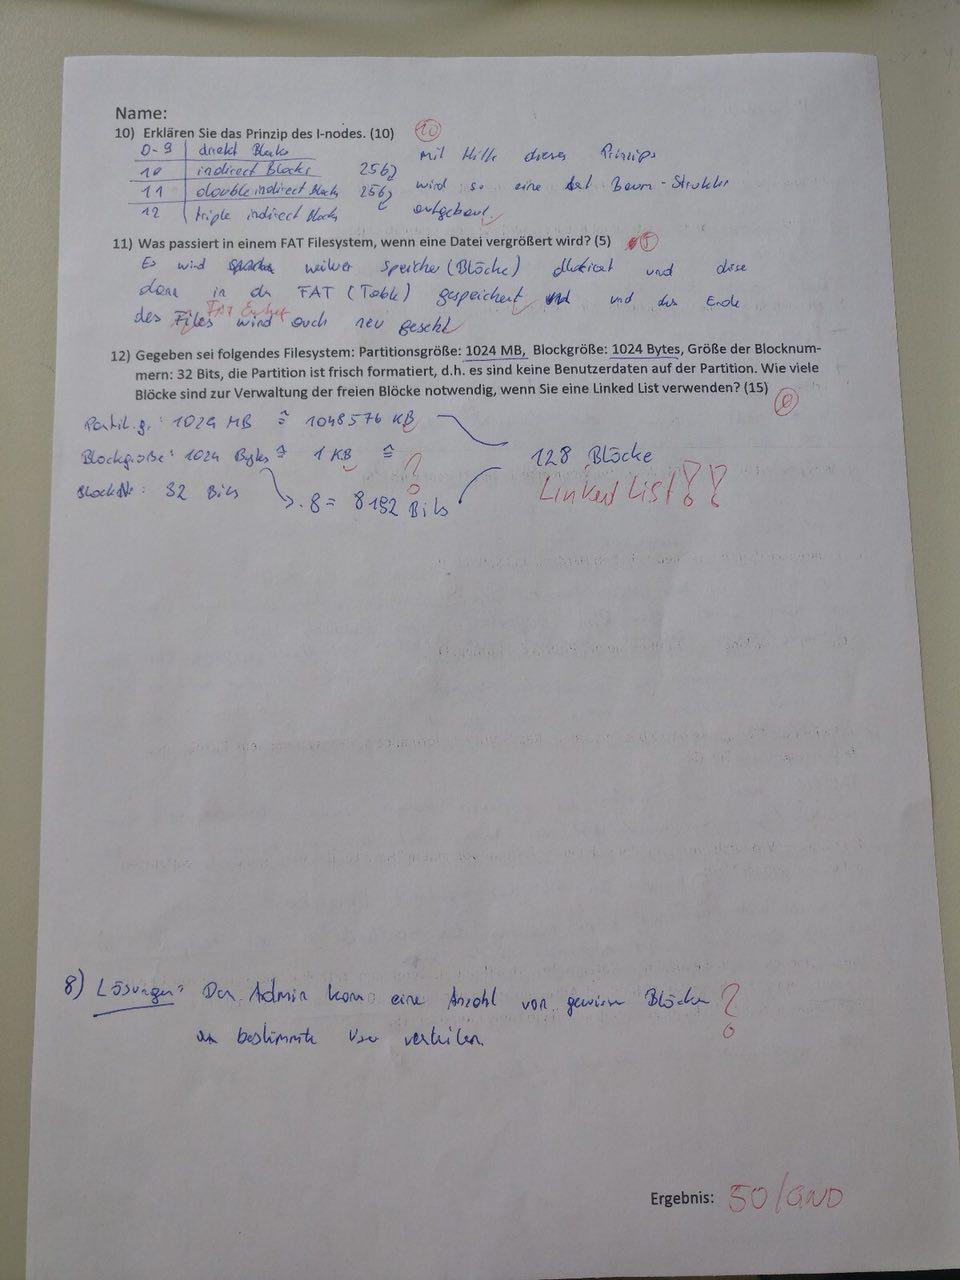 Name:
10) Erklären Sie das Prinzip des I-nodes. (10) 10
0-9 direkt Blocks mit Hilfe dieses Prinzips
10 indirect Blocks 256 wird so eine Art Baum-Struktur
11 double indirect Blocks 256 aufgebaut
12 triple indirect Blocks
11) Was passiert in einem FAT Filesystem, wenn eine Datei vergrößert wird? (5) 5
Es wird weiterer Speicher (Blöcke) und diese
dann in der FAT (Table) gespeichert und das Ende
FAT
des Files wird auch neu gesetzt
12) Gegeben sei folgendes Filesystem: Partitionsgröße: 1024 MB, Blockgröße: 1024 Bytes, Größe der Blocknum-
mern: 32 Bits, die Partition ist frisch formatiert, d.h. es sind keine Benutzerdaten auf der Partition. Wie viele
Blöcke sind zur Verwaltung der freien Blöcke notwendig, wenn Sie eine Linked List verwenden? (15) 0
Partit.g.: 1024 MB ≙ 1048576 KB
Blockgröße: 1024 Bytes ≙ 1 KB ≙ ? 128 Blöcke
BlockNr: 32 Bits . 8 = 8192 Bits Linked List!!
8) Lösungen: Der Admin kann eine Anzahl von gewissen Blöcken ?
an bestimmte User verteilen
Ergebnis: 50/GND